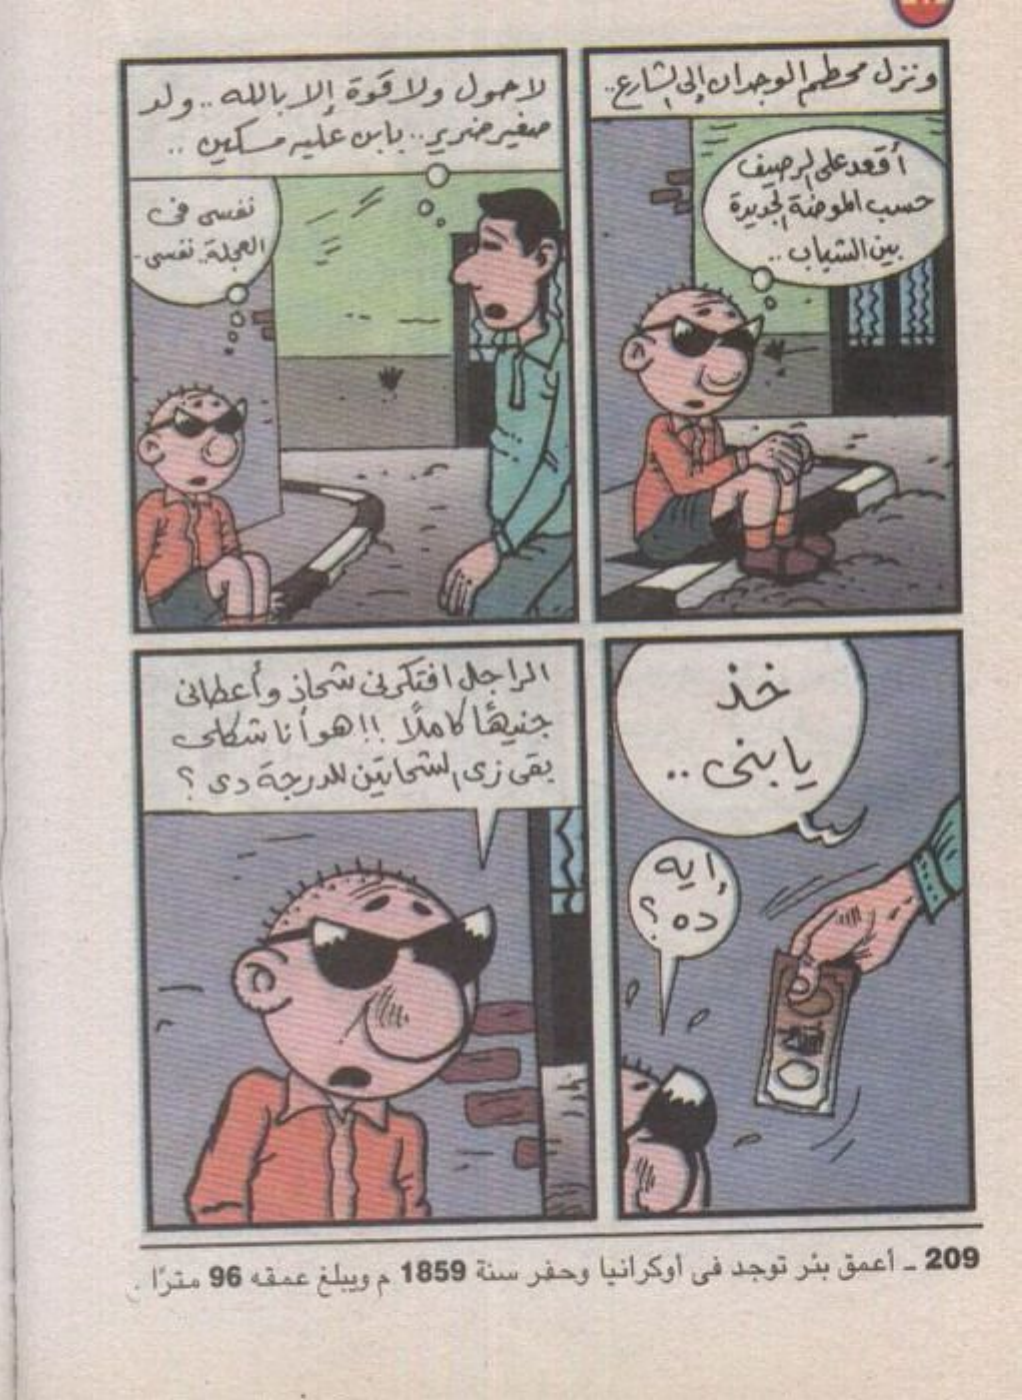 ونزل محطم الوجدان إلى الشارع..
أقعد على الرصيف
حسب الموضة الجديدة
بين الشباب ..
لا حول ولا قوة إلا بالله .. ولد
صغير ضرير .. باين عليه مسكين ..
نفسى فى
العجلة.. نفسى..
خذ
يا بنى ..
إيه
ده ؟
الراجل افتكرنى شحاذ وأعطانى
جنيهًا كاملًا !! هو أنا شكلى
بقى زى الشحاتين للدرجة دى ؟
209 ـ أعمق بئر توجد فى أوكرانيا وحفر سنة 1859 م ويبلغ عمقه 96 مترًا .